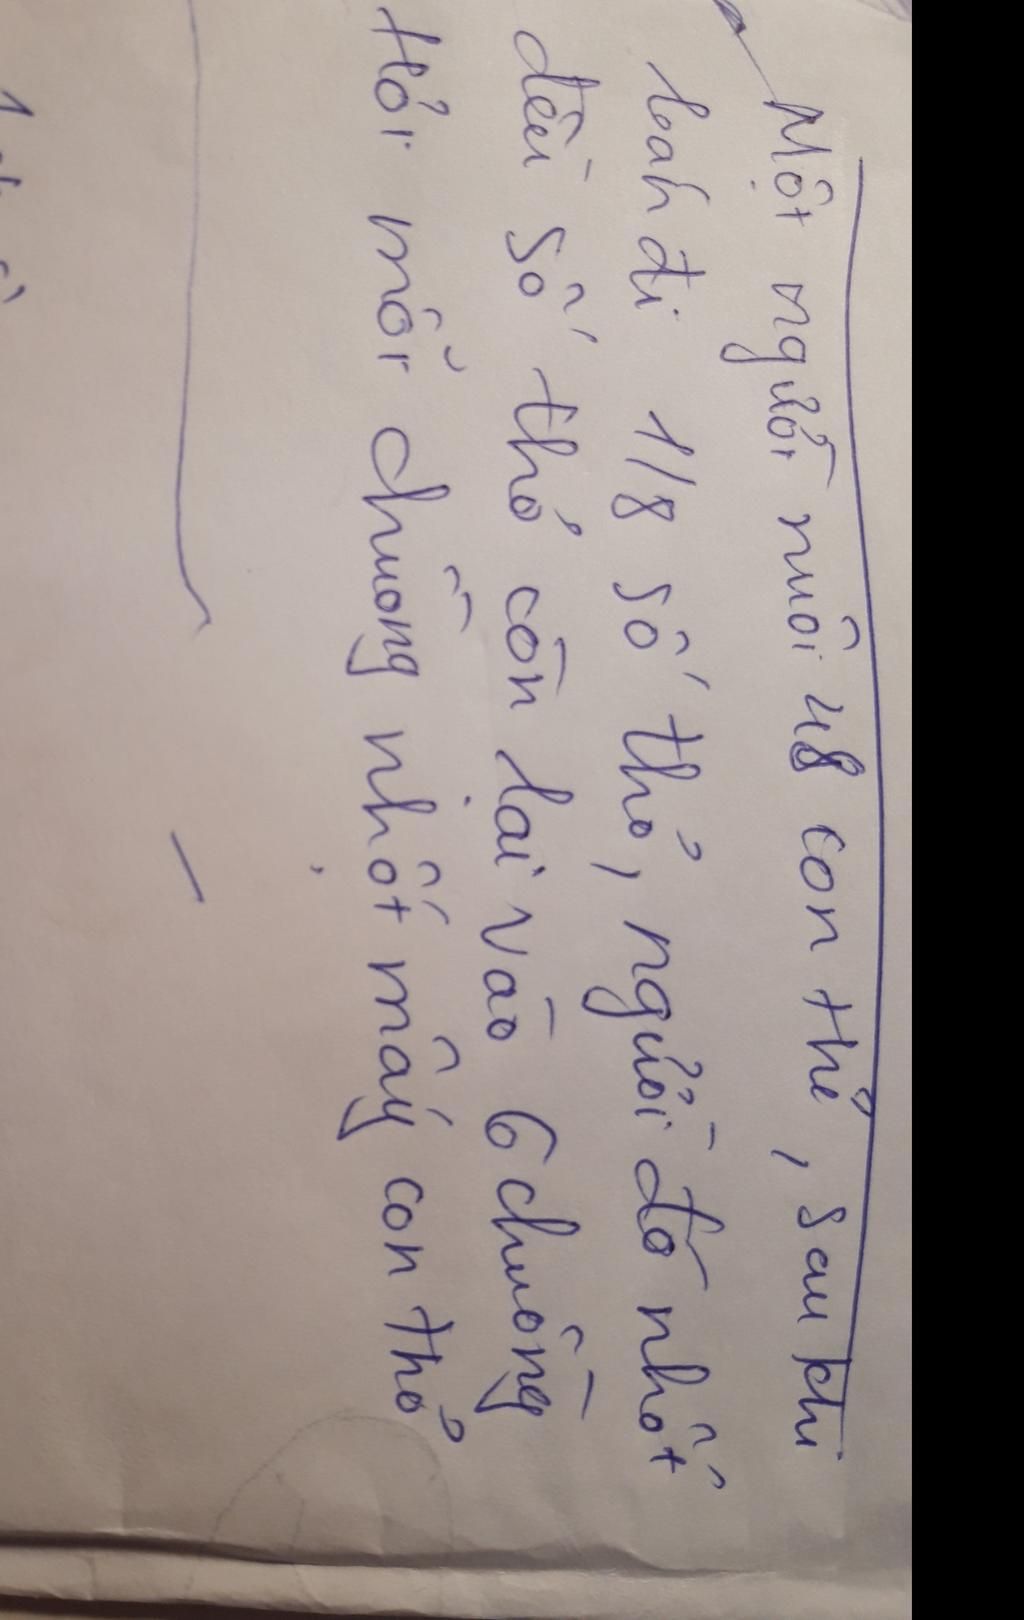 Một người nuôi 48 con thỏ, sau khi
bán đi 1/8 số thỏ, người đó nhốt
đều số thỏ còn lại vào 6 chuồng
Hỏi mỗi chuồng nhốt mấy con thỏ